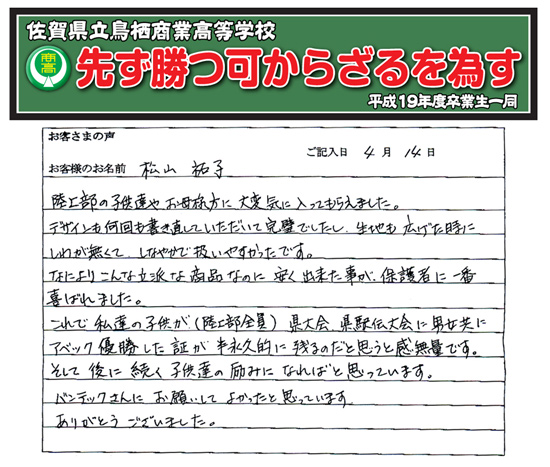 佐賀県立鳥栖商業高等学校
商高
先ず勝つ可からざるを為す
平成19年度卒業生一同
お客さまの声
ご記入日 4月14日
お客様のお名前 松山 祐子
陸上部の子供達やお母様方に大変気に入ってもらえました。
デザインも何回も書き直していただいて完璧でしたし、生地も広げた時に
しわが無くて、しなやかで扱いやすかったです。
なによりこんな立派な商品なのに安く出来た事が、保護者に一番
喜ばれました。
これで私達の子供が(陸上部全員)県大会、県駅伝大会に男女共に
アベック優勝した証が半永久的に残るのだと思うと感無量です。
そして後に続く子供達の励みになればと思っています。
バンテックさんにお願いしてよかったと思っています
ありがとうございました。